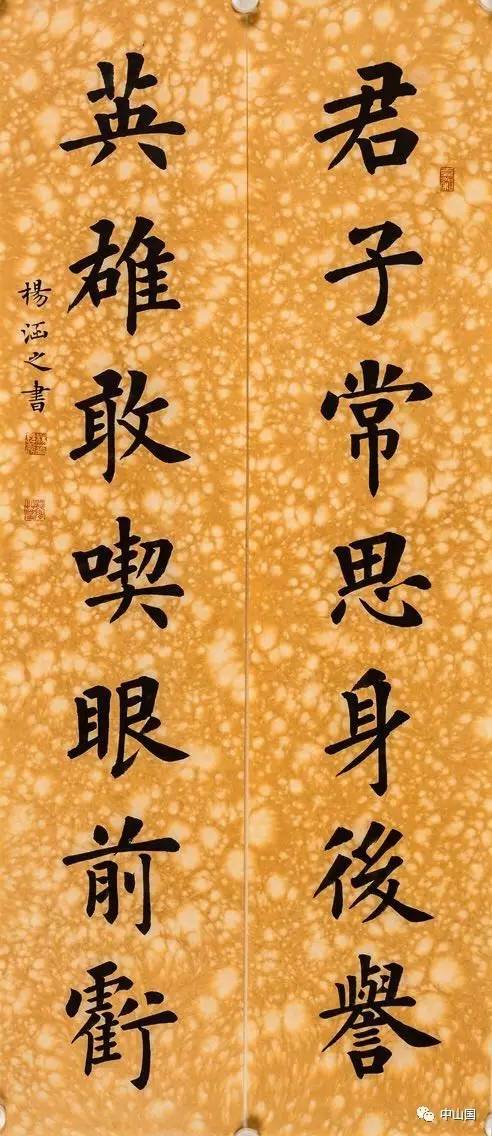 君子常思身後譽
英雄敢喫眼前虧
楊涵之書
中山国